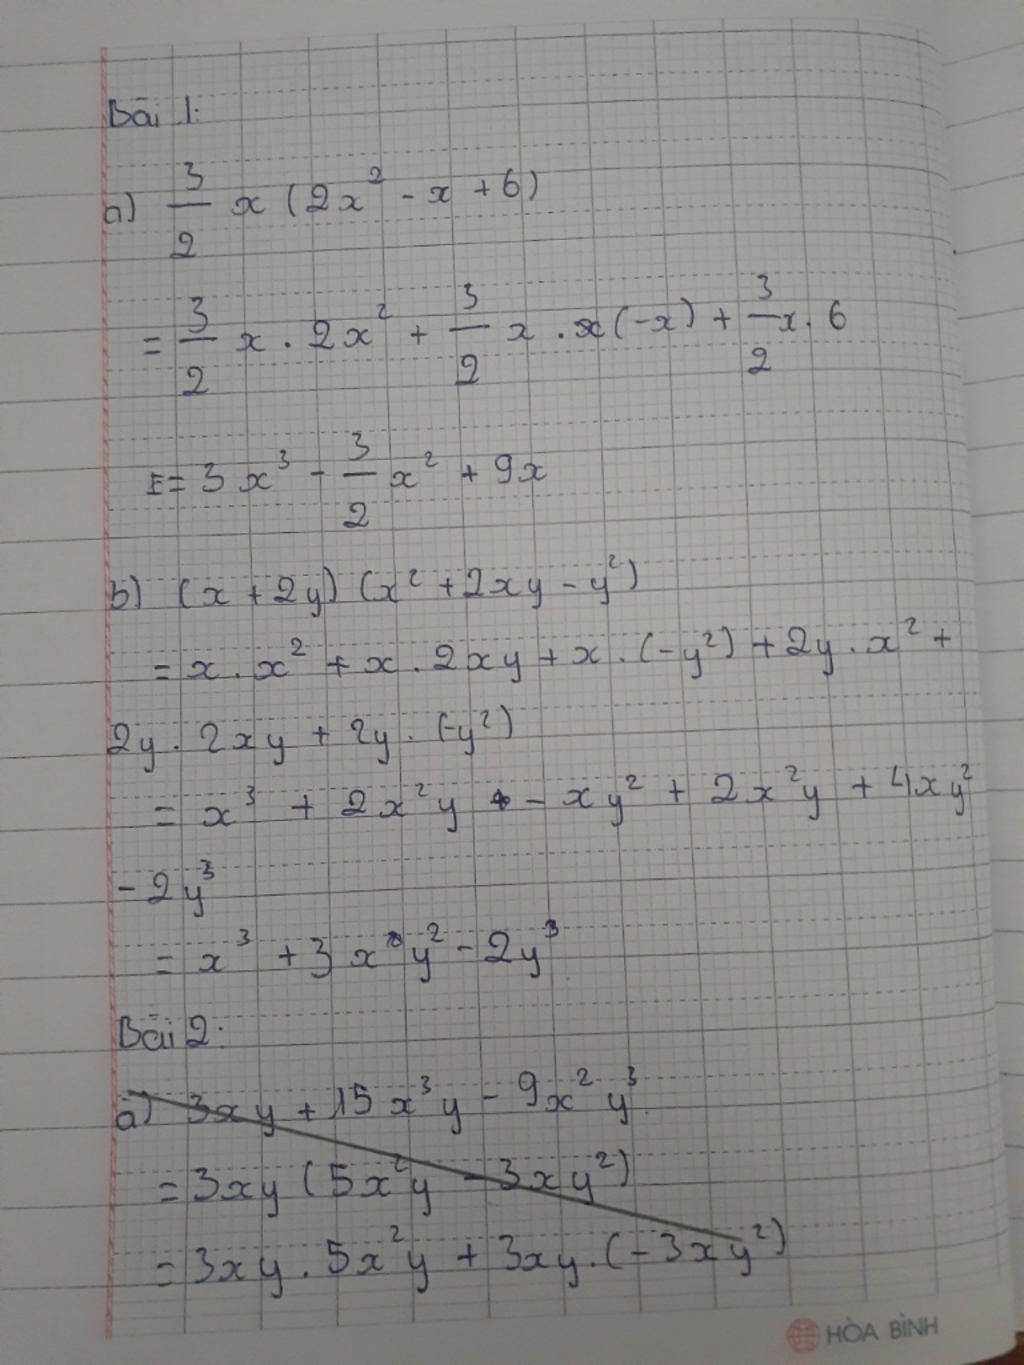 Bài 1:
a) 3/2 x (2x² - x + 6)
= 3/2 x . 2x² + 3/2 x . x (-x) + 3/2 x . 6
= = 3x³ - 3/2 x² + 9x
b) (x + 2y) (x² + 2xy - y²)
= x . x² + x . 2xy + x . (-y²) + 2y . x² +
2y . 2xy + 2y . (-y²)
= x³ + 2x²y - xy² + 2x²y + 4xy²
- 2y³
= x³ + 3 x y² - 2y³
Bài 2:
a) 3xy + 15x³y - 9x²y³
= 3xy (5x²y - 3xy²)
= 3xy . 5x²y + 3xy . (-3xy²)
HÒA BÌNH